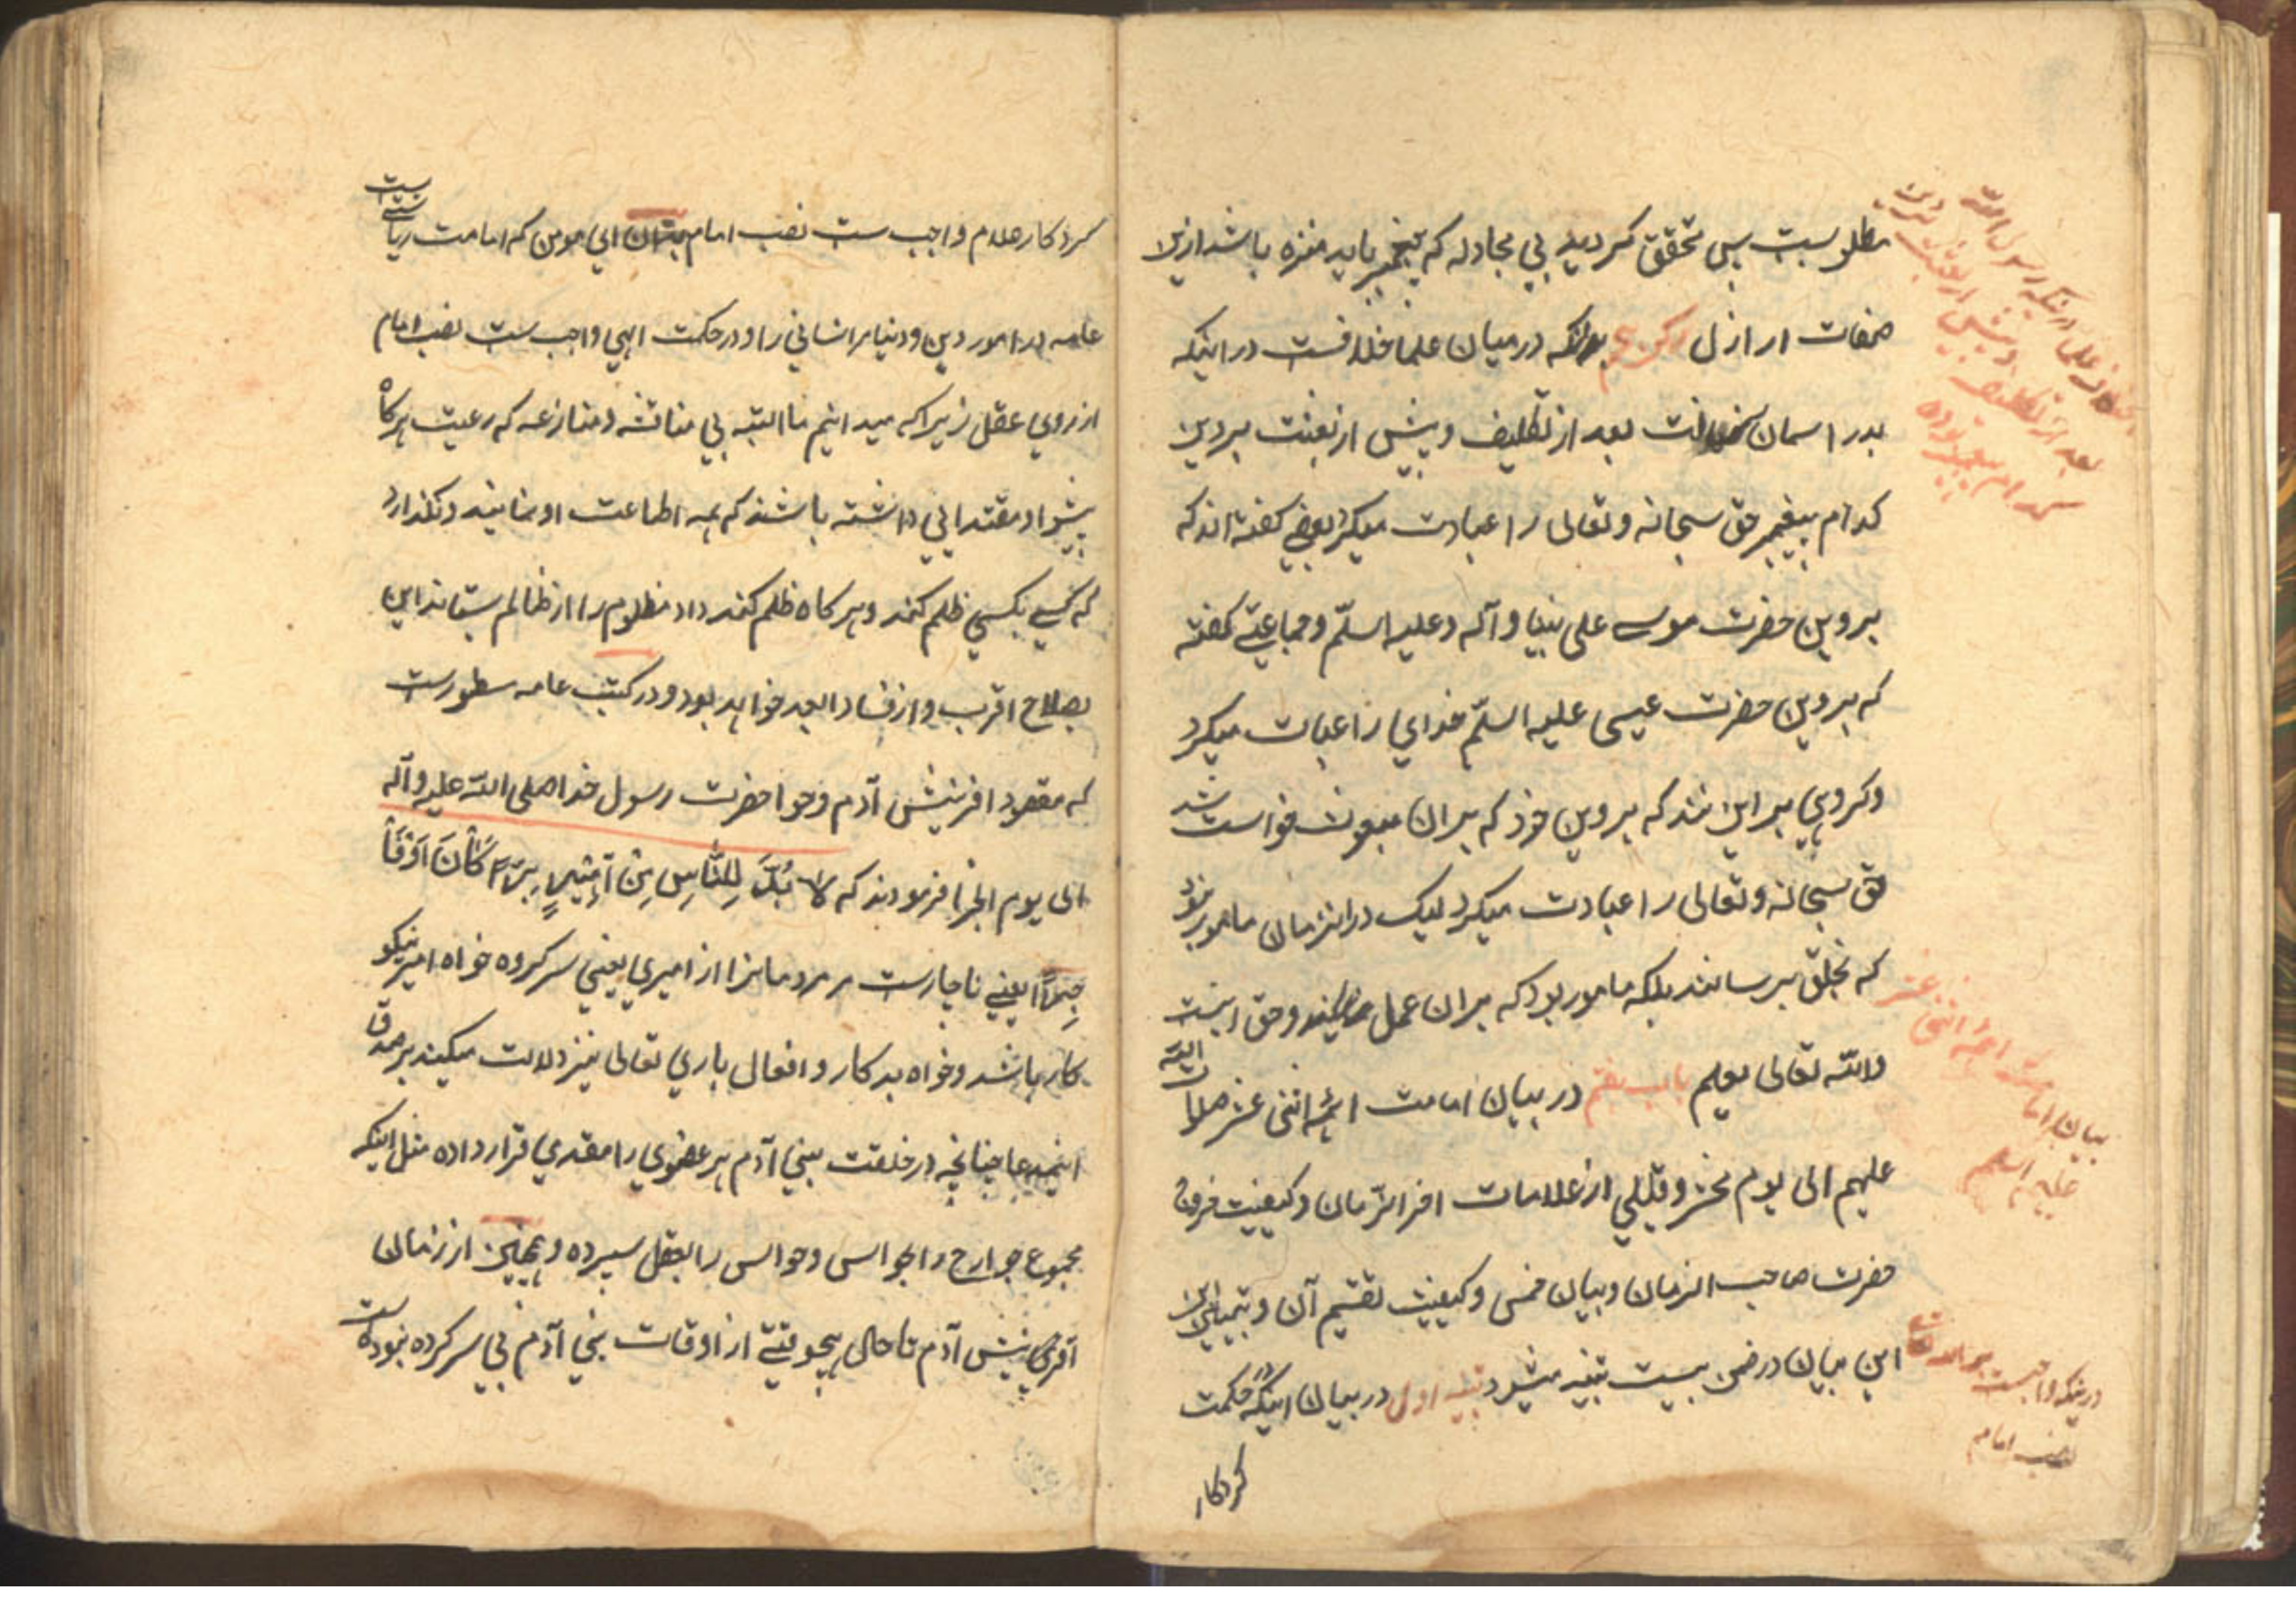 مطلوبست پس محقق کردید بی مجادله که پیغمبر باید منزه باشد ازین
صفات ارازل رکن پنجم بدانکه درمیان علما خلافست در اینکه
بدر اسمان رسالت بعد از تکلیف و پیش از بعثت بر دین
کدام پیغمبر حق سبحانه و تعالی را عبادت میکرد بعضی کفته اندکه
بر دین حضرت موسی علی نبینا و آله و علیه السلّم و جماعتی کفته
که بر دین حضرت عیسی علیه السلّم خدای را عبات میکرد
و کروهی بر این شدند که بر دین خود که بر ان مبعوث خواست شد
حق سبحانه و تعالی را عبادت میکرد لیک در انزمان مامور نبود
که بخلق برساند بلکه مامور بود که بران عمل نماید و حق اینست
والله تعالی یعلم باب هفتم در بیان امامت ائمه اثنی عشر صلوات الله
علیهم الی یوم محشر و قلیلی از علامات اخر الزّمان و کیفیت خروج
حضرت صاحب الزمان و بیان خمس و کیفیت تقسیم آن و تبیین
این بیان در ضمن بیست تنبیه میشود تنبیه اول در بیان اینکه در حکمت
کردکار
اختلاف علما در اینکه رسول الله
بعد از تکلیف و پیش از بعثت بر دین
کدام پیغمبر بوده
بیان امامت ائمه اثنی عشر
علیهم السلم
در اینکه واجبست بر الله تعالی
نصب امام
کردکار علام واجب ست نصب امام بدان ای مومن که امامت ریاستی ست
عامه در امور دین و دنیا مر انسانی را و در حکمت الهی واجب ست نصب امام
از روی عقل زیرا که میدانیم ما البته بی مناقشه و منازعه که رعیت هرکاه
پیشوا و مقتدایی داشته باشند که همه اطاعت او نمایند و نکذارد
که کسی بکسی ظلم کند و هرکاه ظلم کند داد مظلوم را از ظالم بستاند این
بصلاح اقرب و از فساد ابعد خواهد بود و در کتب عامه سطورست
که مقصود افرینش آدم و حوا حضرت رسول خدا صلی الله علیه و آله
الی یوم الجزا فرمودند که لا بُدَّ لِلنَّاسِ مِن آمِیرٍ بَرّاً کَانَ اَوْ فَا
جِراً یعنی ناچارست مر مردمانرا از امیری یعنی سرکرده خواه امیر نیکو
کار باشد و خواه بد کار و افعال باری تعالی نیز دلالت میکند بر صدق
اینمدعا چنانچه در خلقت بنی آدم هر عضوی را مقتدی قرار داده مثل اینکه
مجموع جوارح را بحواس و حواس را بعقل سپرده و همچنین از زمان
آفرینش آدم تا حال هیچوقتی از اوقات بنی آدم بی سرکرده نبوده است